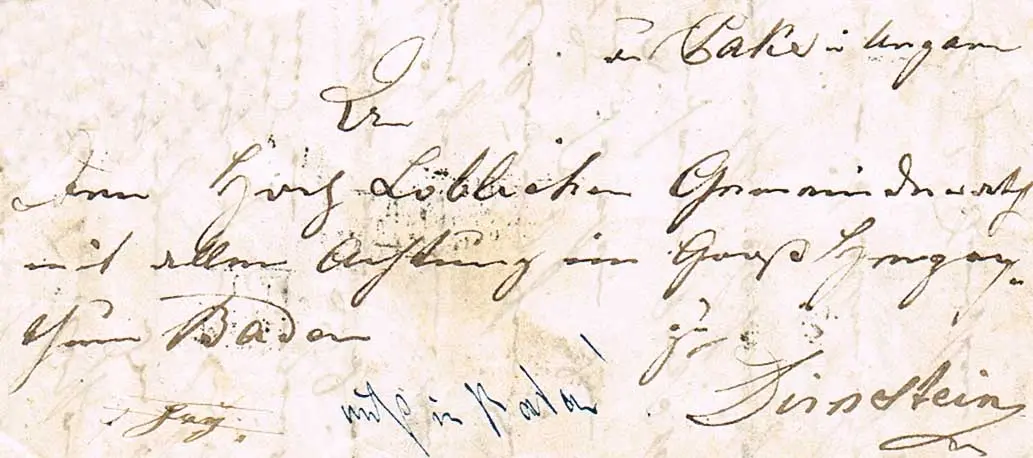 in Paké in Ungarn
An
den Hoch Löblichen Gemeinderath
mit aller Achtung im Groß Herzog¬
thum Baden
zu
nicht in Baden
Dirnstein